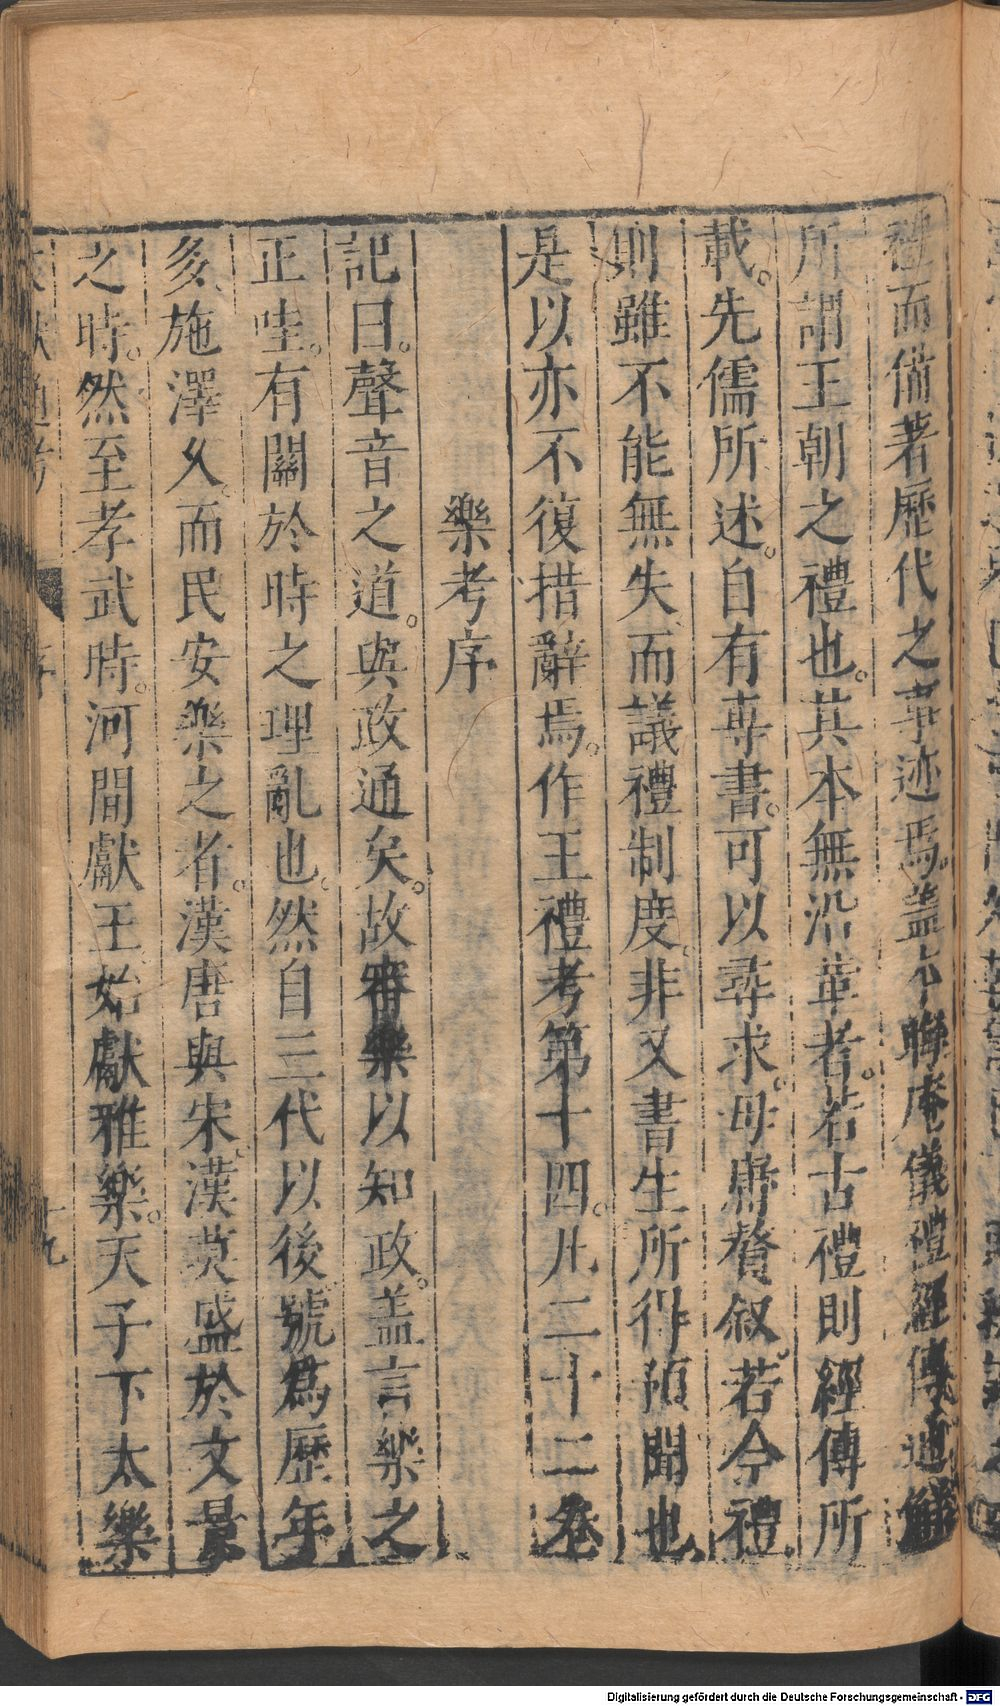 禮而備著歷代之事迹焉。蓋本晦庵儀禮經傳通解
所謂王朝之禮也。其本無沿革者。若古禮則經傳所
載。先儒所述。自有專書。可以尋求。毋庸贅叙。若今禮
則雖不能無失。而議禮制度。非又書生所得預聞也
是以亦不復措辭焉。作王禮考第十四。凡二十二卷
樂考序
記曰。聲音之道。與政通矣。故審樂以知政。盖言樂之
正哇。有關於時之理亂也。然自三代以後。號爲歷年
多。施澤久。而民安樂之者。漢唐與宋。漢莫盛於文景
之時。然至孝武時。河間獻王始獻雅樂。天子下太樂
文獻通考 序 十九
Digitalisierung gefördert durch die Deutsche Forschungsgemeinschaft - DFG